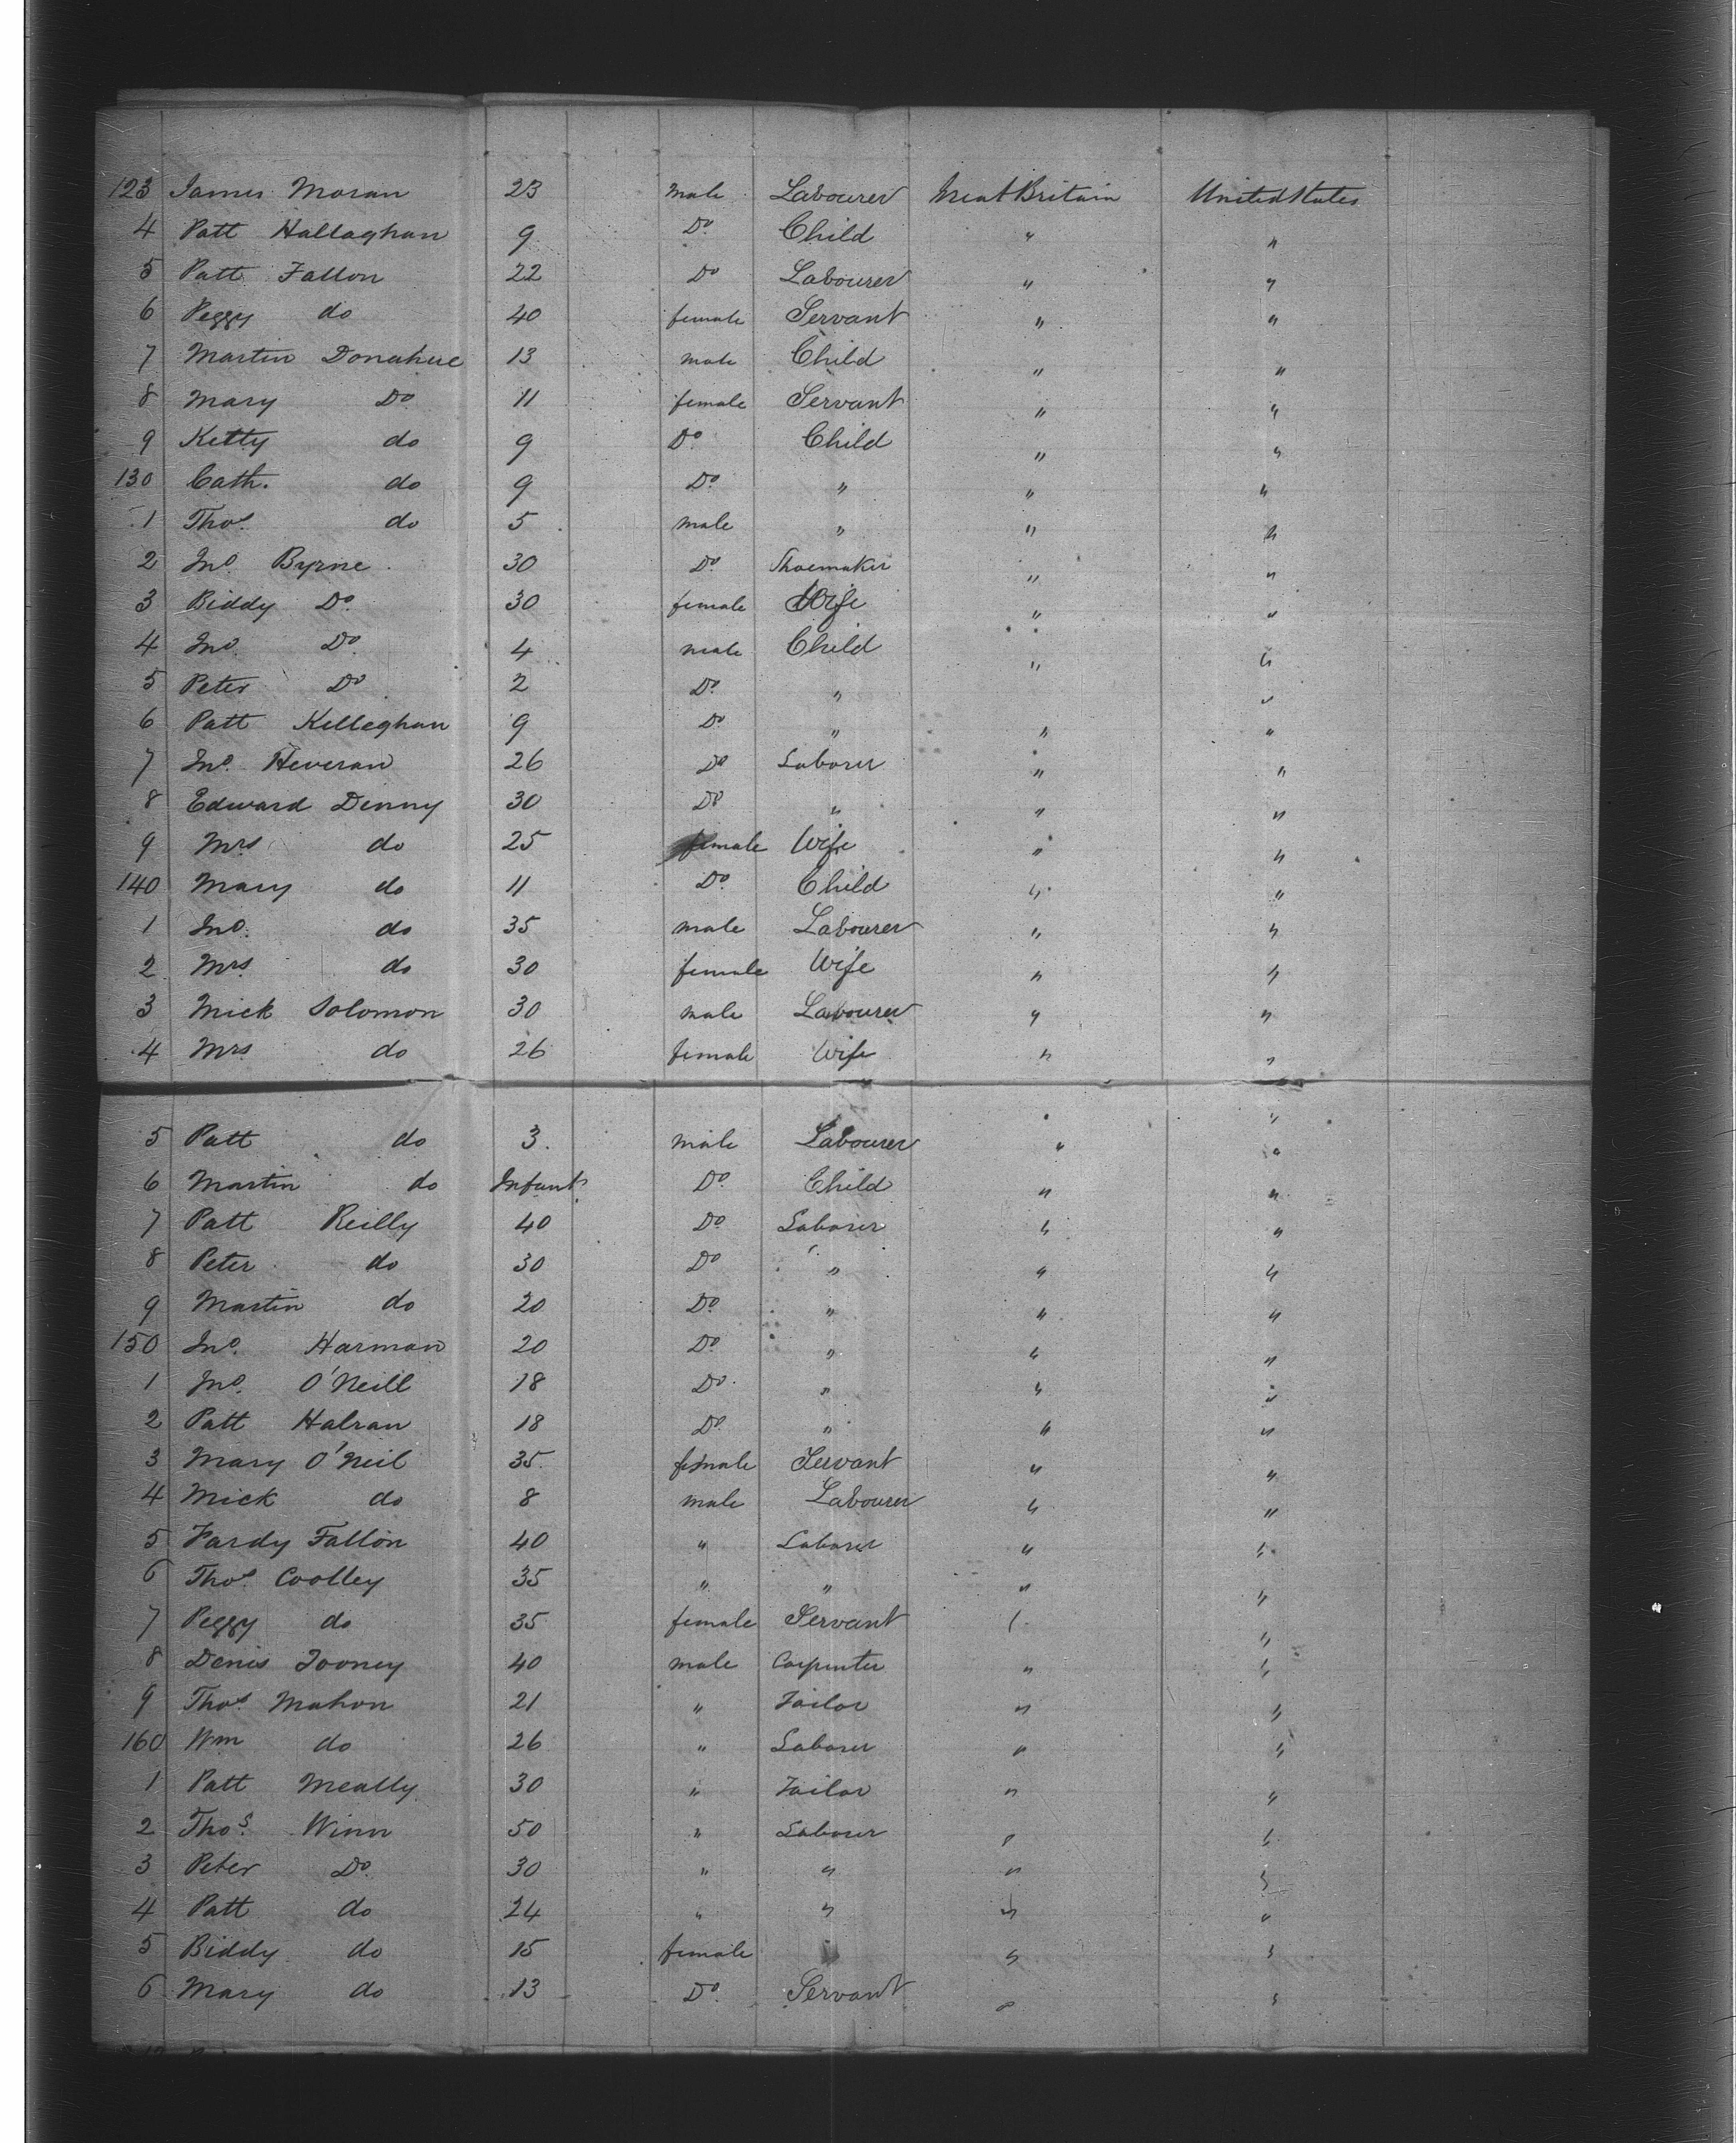 123 James Moran 23 male Labourer Great Britain United States
4 Patt Hallaghan 9 Do Child " "
5 Patt Fallon 22 Do Labourer " "
6 Peggy do 40 female Servant " "
7 Martin Donahue 13 male Child " "
8 Mary Do 11 female Servant " "
9 Ketty do 9 Do Child " "
130 Cath. do 9 Do " " "
1 Thos do 5 male " " "
2 Jno Byrne 30 Do Shoemaker " "
3 Biddy Do 30 female Wife " "
4 Jno Do 4 male Child " "
5 Peter Do 2 Do " "
6 Patt Kelleghan 9 Do " " "
7 Jno Heveran 26 Do Laborer " "
8 Edward Denny 30 Do " " "
9 Mrs do 25 female Wife " "
140 Mary do 11 Do Child " "
1 Jno. do 35 male Labourer " "
2 Mrs do 30 female Wife " "
3 Mick Solomon 30 male Labourer " "
4 Mrs do 26 female Wife " "
"
5 Patt do 3 male Labourer " "
6 Martin do Infant Do Child " "
7 Patt Reilly 40 Do Laborer " "
8 Peter do 30 Do " " "
9 Martin do 20 Do " " "
150 Jno. Harman 20 Do " " "
1 Jno. O'Neill 18 Do " " "
2 Patt Halran 18 Do " " "
3 Mary O'Neil 35 female Servant " "
4 Mick do 8 male Labourer " "
5 Fardy Fallon 40 " Laborer " "
6 Thos Coolley 35 " " " "
7 Peggy do 35 female Servant " "
8 Denis Tooney 40 male Carpenter " "
9 Thos Mahon 21 " Tailor " "
160 Wm do 26 " Laborer " "
1 Patt Meally 30 " Tailor " "
2 Thos Winn 50 " Laborer " "
3 Peter Do 30 " " " "
4 Patt do 24 " " " "
5 Biddy do 15 female " "
6 Mary do 13 Do Servant " "